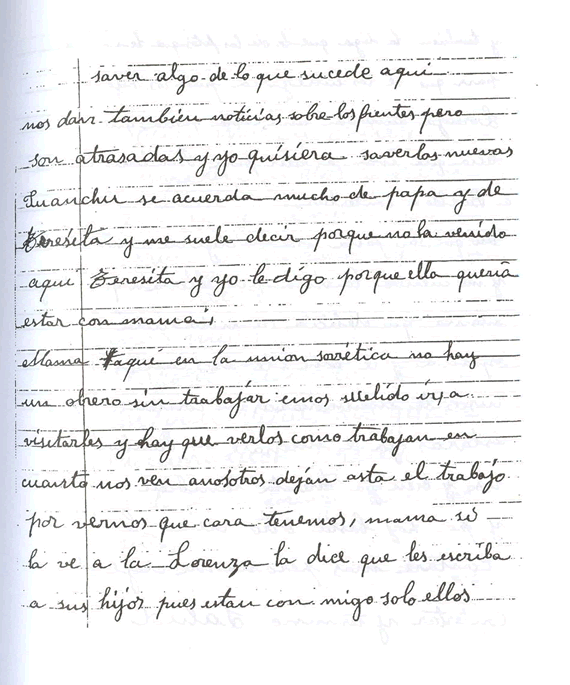 saver algo de lo que sucede aqui
nos dan tambien noticias sobre los frentes pero
son atrasadas y yo quisiera saverlas nuevas
Juanchu se acuerda mucho de papa y de
Teresita y me suele decir porque no ha venido
aqui Teresita y yo le digo porque ella queria
estar con mama;
Mama aqui en la union sovietica no hay
un obrero sin trabajar emos suelido ir a
visitarles y hay que verlos como trabajan en
cuanto nos ven anosotros dejan asta el trabajo
por vernos que cara tenemos, mama si
la ve a la Lorenza la dice que les escriba
a sus hijos pues estan con migo solo ellos